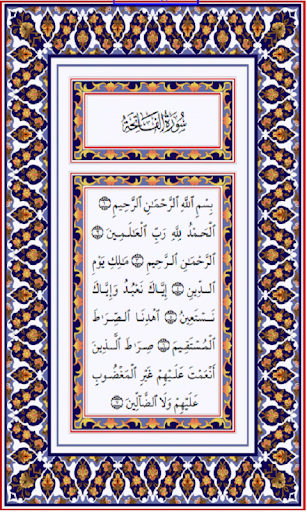 سُورَةُ الفَاتِحَةِ
بِسْمِ ٱللَّهِ ٱلرَّحْمَٰنِ ٱلرَّحِيمِ ۝
ٱلْحَمْدُ لِلَّهِ رَبِّ ٱلْعَٰلَمِينَ ۝
ٱلرَّحْمَٰنِ ٱلرَّحِيمِ ۝ مَٰلِكِ يَوْمِ
ٱلدِّينِ ۝ إِيَّاكَ نَعْبُدُ وَإِيَّاكَ
نَسْتَعِينُ ۝ ٱهْدِنَا ٱلصِّرَٰطَ
ٱلْمُسْتَقِيمَ ۝ صِرَٰطَ ٱلَّذِينَ
أَنْعَمْتَ عَلَيْهِمْ غَيْرِ ٱلْمَغْضُوبِ
عَلَيْهِمْ وَلَا ٱلضَّآلِّينَ ۝